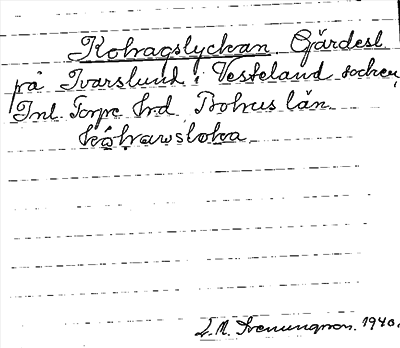 Kohagslyckan Gärdesl
på Ivarslund i Vesteland socken
Inl. Torpe hrd Bohus län
kóhawslọka
L. N. Svenungsson. 1940.